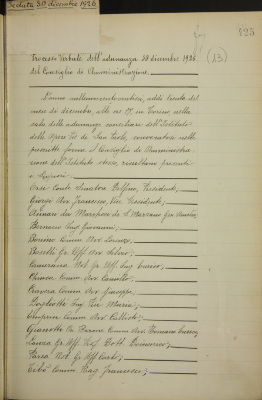 Seduta 30 dicembre 1926
325
(13)
Processo Verbale dell'adunanza 30 dicembre 1926
del Consiglio di Amministrazione.
L'anno millenovecentoventisei, addì trenta del
mese di dicembre, alle ore 17, in Torino, nella
sala delle adunanze consiliari dell'Istituto
delle Opere Pie di San Paolo, convocatosi nelle
prescritte forme il Consiglio di Amministra-
zione dell'Istituto stesso, risultano presenti
i Signori:
Orsi Conte Delfino, Presidente;
Giorgi Avv. Francesco, Vice Presidente;
Asinari dei Marchesi di S. Marzano
Bernocco Ing. Giovanni;
Comm. Avv. Lorenzo;
Gr. Uff. Avv.
Not. Gr. Uff. Ing. Enrico;
Comm. Avv. Camillo;
Comm. Avv. Giuseppe;
Ing. Pio Maria;
Comm. Avv.
Gianotti Barone Comm. Avv. Romano
Lanza Gr. Uff. Prof. Dott. Domenico;
Not. Gr. Uff. Carlo;
Comm. Rag. Francesco;